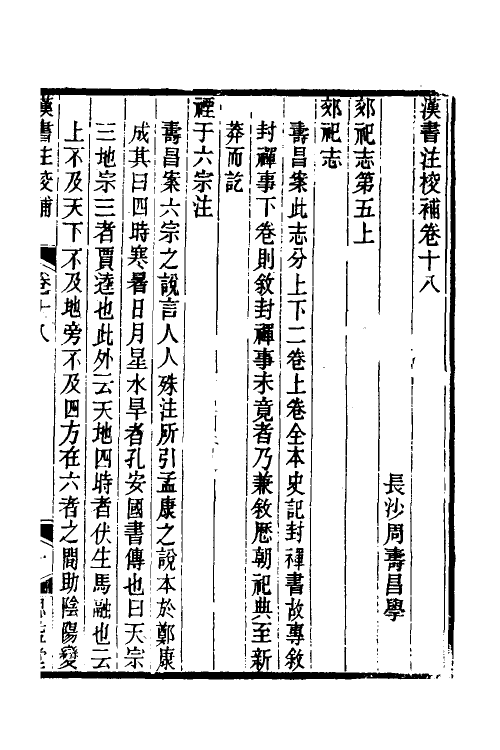 漢書注校補卷十八
長沙周壽昌學
郊祀志第五上
郊祀志
壽昌案此志分上下二卷上卷全本史記封禪書故專敘
封禪事下卷則敘封禪事未竟者乃兼敘歷朝祀典至新
莽而訖
禋于六宗注
壽昌案六宗之說言人人殊注所引孟康之說本於鄭康
成其曰四時寒暑日月星水旱者孔安國書傳也曰天宗
三地宗三者賈逵也此外云天地四時者伏生馬融也云
上不及天下不及地旁不及四方在六者之間助陰陽變
漢書注校補
卷十八
一